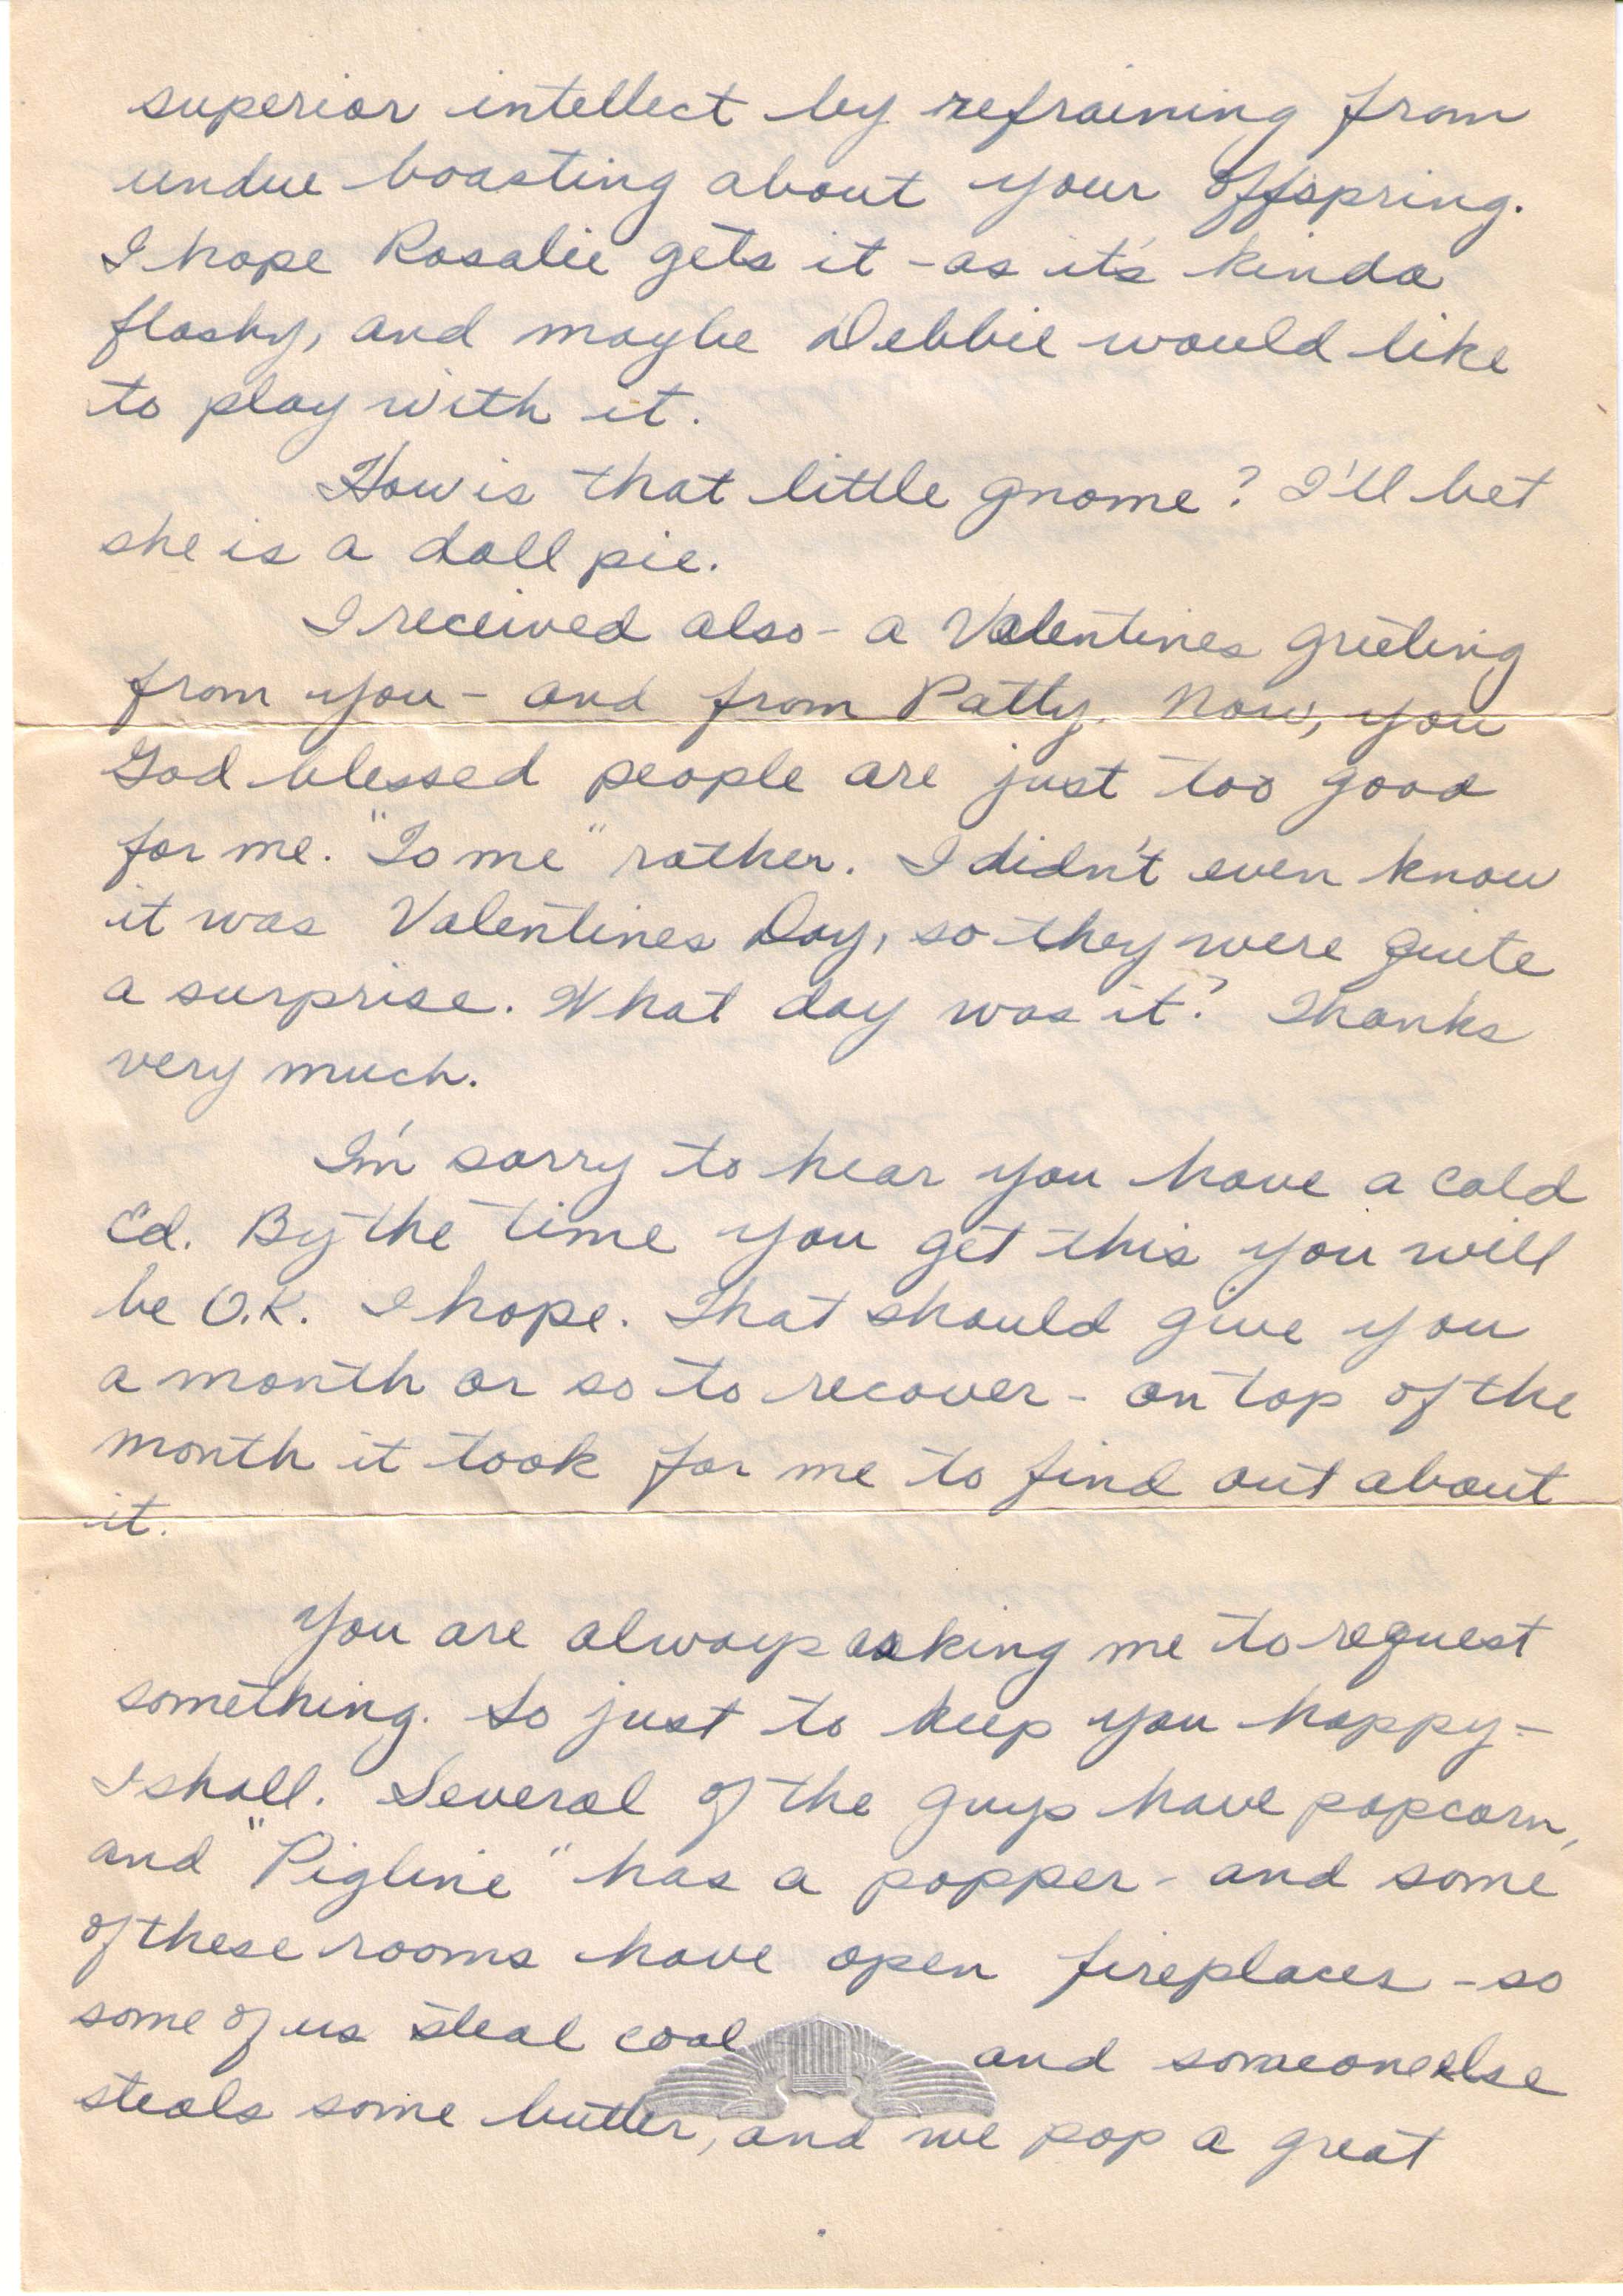 superior intellect by refraining from
undue boasting about your offspring.
I hope Rosalie gets it - as it's kinda
flashy, and maybe Debbie would like
to play with it.
How is that little gnome? I'll bet
she is a doll pie.
I received also - a Valentines greeting
from you - and from Patty. Now, you
God blessed people are just too good
for me. "To me" rather. I didn't even know
it was Valentines Day, so they were quite
a surprise. What day was it? Thanks
very much.
I'm sorry to hear you have a cold
Ed. By the time you get this you will
be O.K. I hope. That should give you
a month or so to recover - on top of the
month it took for me to find out about
it.
You are always asking me to request
something. So just to keep you happy -
I shall. Several of the guys have popcorn,
and "Pigline" has a popper - and some
of these rooms have open fireplaces - so
some of us steal coal and someone else
steals some butter, and we pop a great